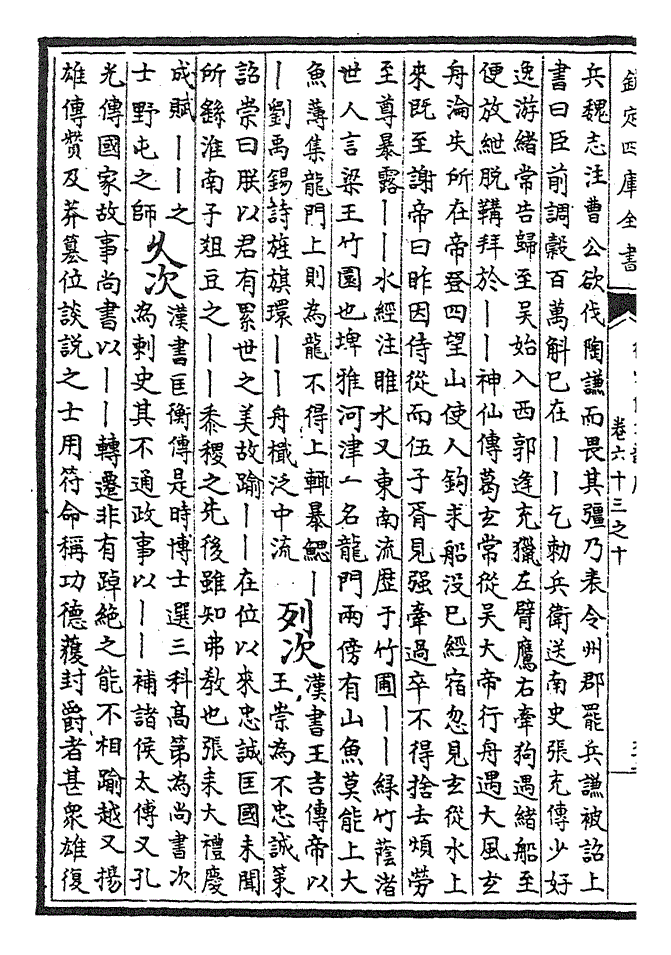 欽定四庫全書
卷六十三之十
兵魏志注曹公欲伐陶謙而畏其彊乃表令州郡罷兵謙被詔上
書曰臣前調穀百萬斛已在丨丨乞勅兵衛送南史張充傳少好
逸游緒常告歸至吳始入西郭逢充獵左臂鷹右牽狗遇緒船至
便放紲脱鞲拜於丨丨神仙傳葛玄常從吳大帝行舟遇大風玄
舟淪失所在帝登四望山使人鈎求船没已經宿忽見玄從水上
來既至謝帝曰昨因侍從而伍子胥見强牽過卒不得捨去煩勞
至尊暴露丨丨水經注睢水又東南流歴于竹圃丨丨緑竹蔭渚
世人言梁王竹園也埤雅河津一名龍門兩傍有山魚莫能上大
魚薄集龍門上則為龍不得上輒暴鰓丨
丨劉禹錫詩旌旗環丨丨舟檝泛中流
列次
漢書王吉傳帝以
王崇為不忠誠策
詔崇曰朕以君有累世之美故踰丨丨在位以來忠誠匡國未聞
所繇淮南子俎豆之丨丨黍稷之先後雖知弗教也張耒大禮慶
成賦丨丨之
士野屯之師
久次
漢書匡衡傳是時博士選三科髙第為尚書次
為刺史其不通政事以丨丨補諸侯太傅又孔
光傳國家故事尚書以丨丨轉遷非有踔絶之能不相踰越又揚
雄傳贊及莽簒位談説之士用符命稱功德獲封爵者甚衆雄復